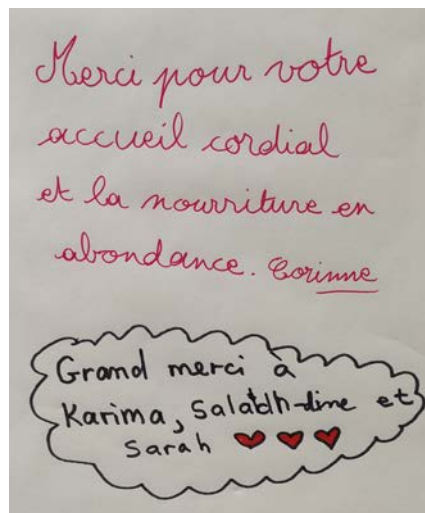 Merci pour votre
accueil cordial
et la nourriture en
abondance. Corinne
Grand merci à
Karima, et
Sarah